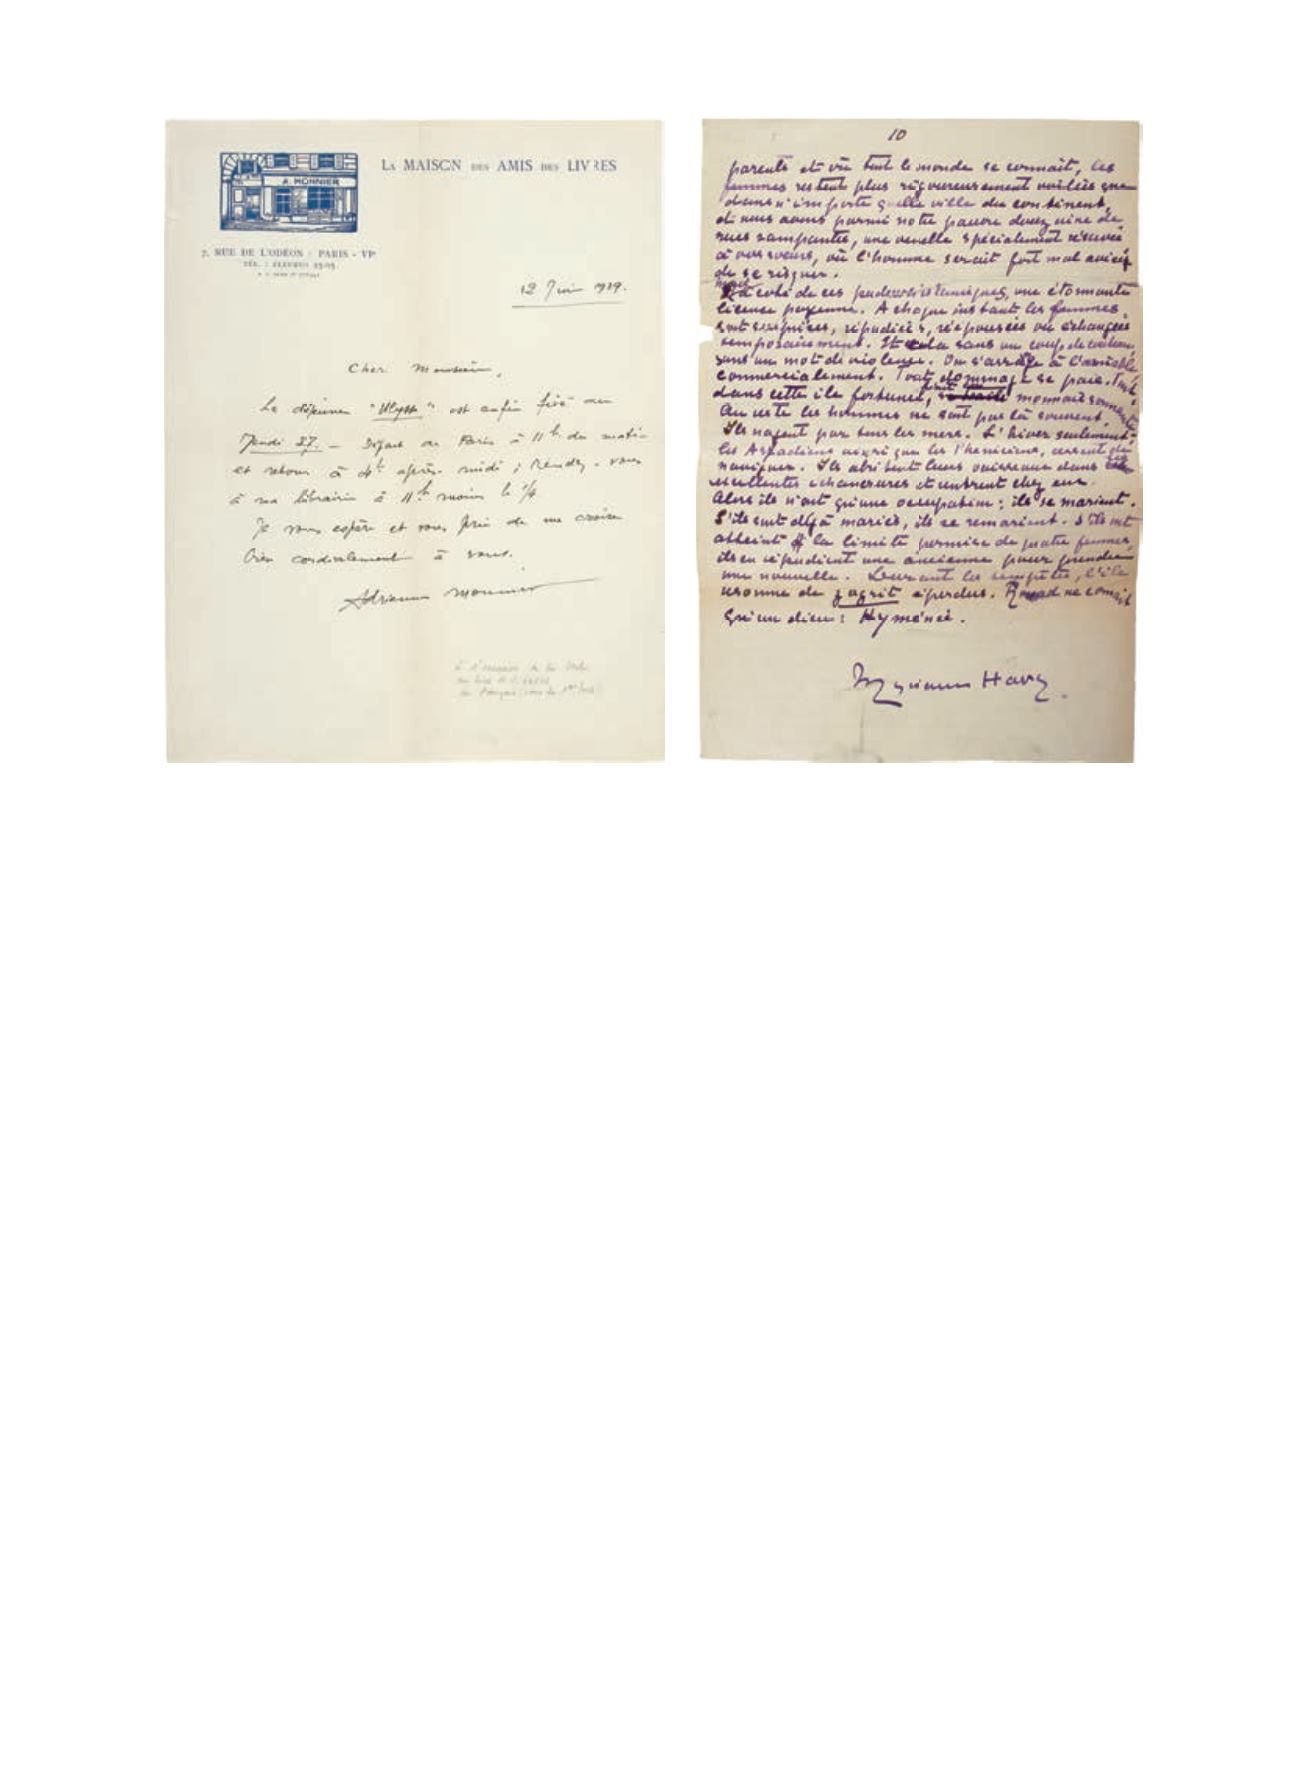 A. MONNIER
LA MAISON DES AMIS DES LIVRES
7, RUE DE L'ODÉON · PARIS - VIe
TÉL. : FLEURUS 25-05
12 Juin 1929.
Cher Monsieur,
Le déjeuner "Ulysse" est enfin fixé au
Jeudi 27. — Départ de Paris à 11h du matin
et retour à 4h après-midi ; Rendez-vous
à ma librairie à 11h moins le 1/4
Je vous espère et vous prie de me croire
bien cordialement à vous.
Adrienne Monnier
10
parents et où tout le monde se connaît, les
femmes restent plus rigoureusement voilées que
dans n'importe quelle ville du continent,
et nous avons parmi notre pauvre douzaine de
rues rampantes, une venelle spécialement réservée
à vos sœurs, où l'homme serait fort mal avisé
de se risquer.
à côté de ces pudeurs islamiques, une étonnante
licence payenne. A chaque instant les femmes
sont surprises, répudiées, réépousées ou échangées
temporairement. Et cela sans un coup de couteau,
sans un mot de violence. On s'arrange à l'amiable,
commercialement. Tout dommage se paie. Tout
dans cette île fortunée, monnaie sonnante
Au reste les hommes ne sont pas là souvent.
Ils nagent par tous les mers. L'hiver seulement,
les Arpadiens ainsi que les Phéniciens, cessent de
naviguer. Ils abritent leurs vaisseaux dans
excellentes échancrures et rentrent chez eux.
Alors ils n'ont qu'une occupation : ils se marient.
S'ils sont déjà mariés, ils se remarient. S'ils ont
atteint la limite permise de quatre femmes,
ils en répudient une ancienne pour prendre
une nouvelle. Durant les tempêtes, l'île
résonne de zagrit éperdus. Rouad ne connaît
qu'un dieu : Hyménée.
Myriam Harry